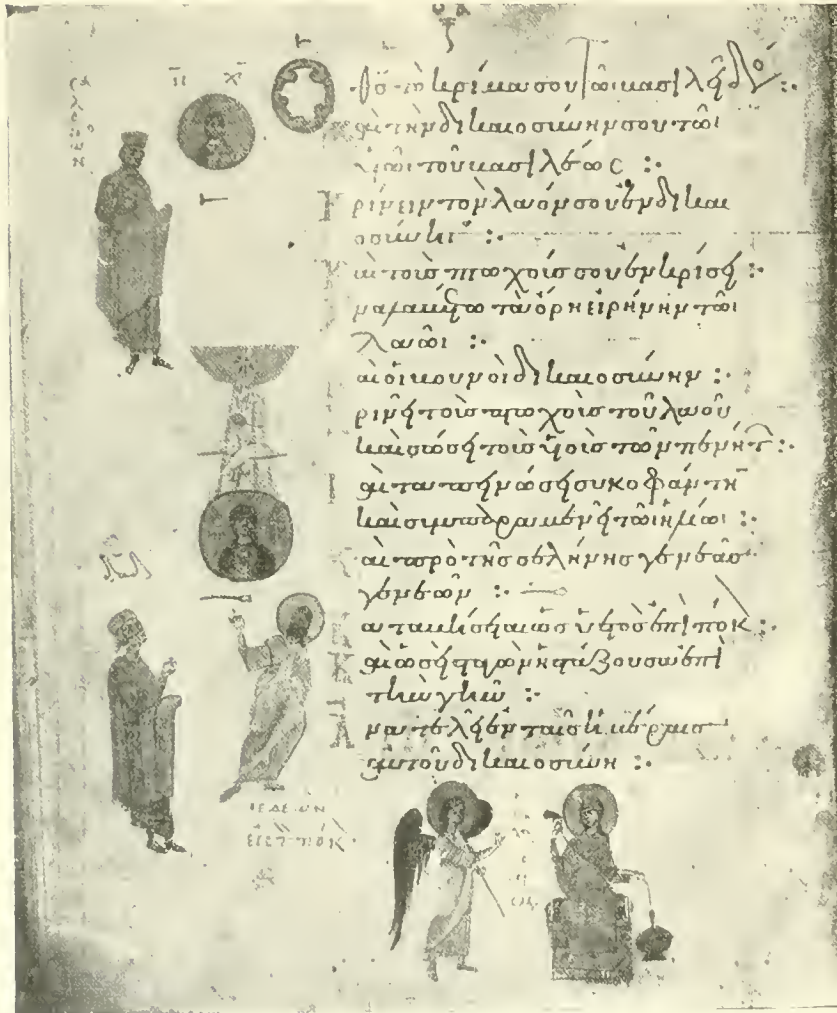 ΟΑ
ὁ θς τὸ κρίμα σου τῶι βασιλεῖ δὸ :·
καὶ τὴν δικαιοσύνην σου τῶι
υἱῶι τοῦ βασιλέως :·
κρίνειν τὸν λαόν σου ἐν δικαι
οσύνηι :·
καὶ τοὺς πτωχούς σου ἐν κρίσει :·
τὰ ὄρη εἰρήνην τῶι
λαῶι :·
καὶ οἱ βουνοὶ δικαιοσύνην :·
κρινεῖ τοὺς πτωχοὺς τοῦ λαοῦ
καὶ σώσει τοὺς υἱοὺς τῶν πενήτ :·
καὶ ταπεινώσει συκοφάντη
καὶ συμπαραμενεῖ τῶι ἡλίωι :·
καὶ πρὸ τῆς σελήνης γενεὰς
γενεῶν :·
καταβήσεται ὡς ὑετὸς ἐπὶ πόκ :·
καὶ ὡσεὶ ἐπὶ
τὴν γῆν :·
ἀνατελεῖ ἐν ταῖς ἡμέραις
αὐτοῦ δικαιοσύνη :·
ΓΕΔΕΩΝ